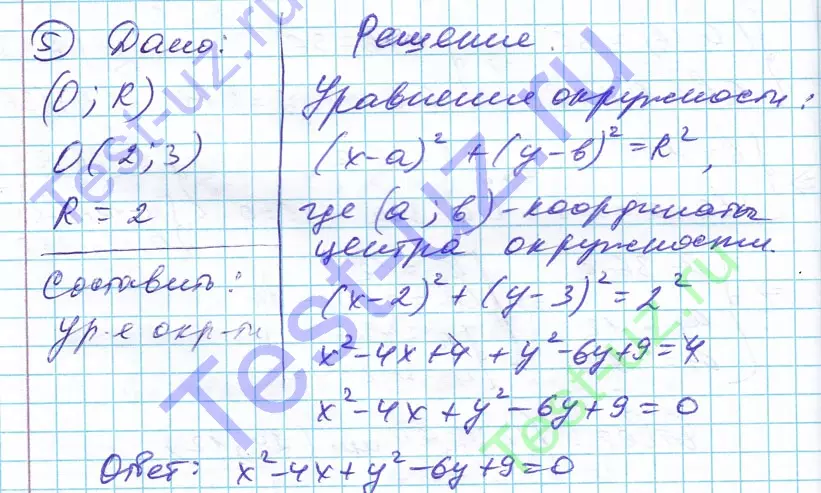 5 Дано:
(O; R)
O(2; 3)
R = 2
Составить:
ур-е окр-ти
Решение.
Уравнение окружности:
(x-a)² + (y-в)² = R²,
где (a; в) - координаты
центра окружности.
(x-2)² + (y-3)² = 2²
x² - 4x + 4 + y² - 6y + 9 = 4
x² - 4x + y² - 6y + 9 = 0
Ответ: x² - 4x + y² - 6y + 9 = 0
Test-uz.ru
Test-uz.ru
Test-uz.ru